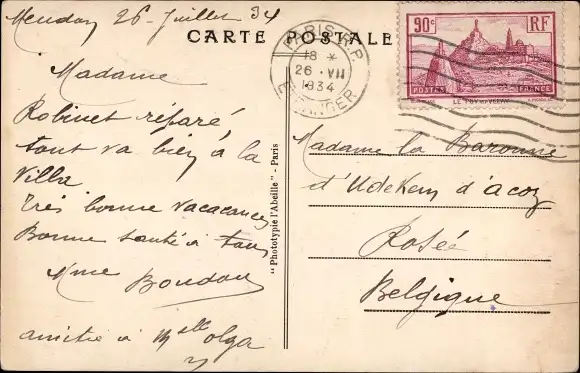 Meudon 26 Juillet 34
CARTE POSTALE
Madame
Robinet réparé
tout va bien à la
Villa
Très bonne vacacances
Bonne santé à tous
Mme Boudou
amitié à Mlle Olga
"Phototypie l'Abeille" - Paris
PARIS R.P.
18 *
26 · VII
1934
ETRANGER
90c RF
POSTES FRANCE
LE PUY-EN-VELAY
Madame la Baronne
d'Udekem d'acoz
Rosée
Belgique